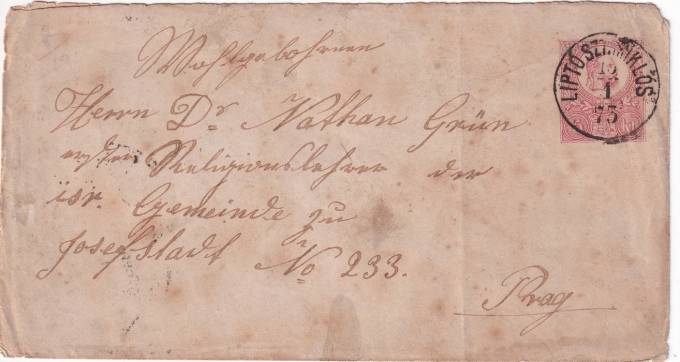 Wohlgebohrnen
Herrn Dr. Nathan Grün
ersten Religionslehrer der
isr. Gemeinde zu
Josefstadt No 233.
Prag
LIPTÓ SZT. MIKLÓS
15
1
75